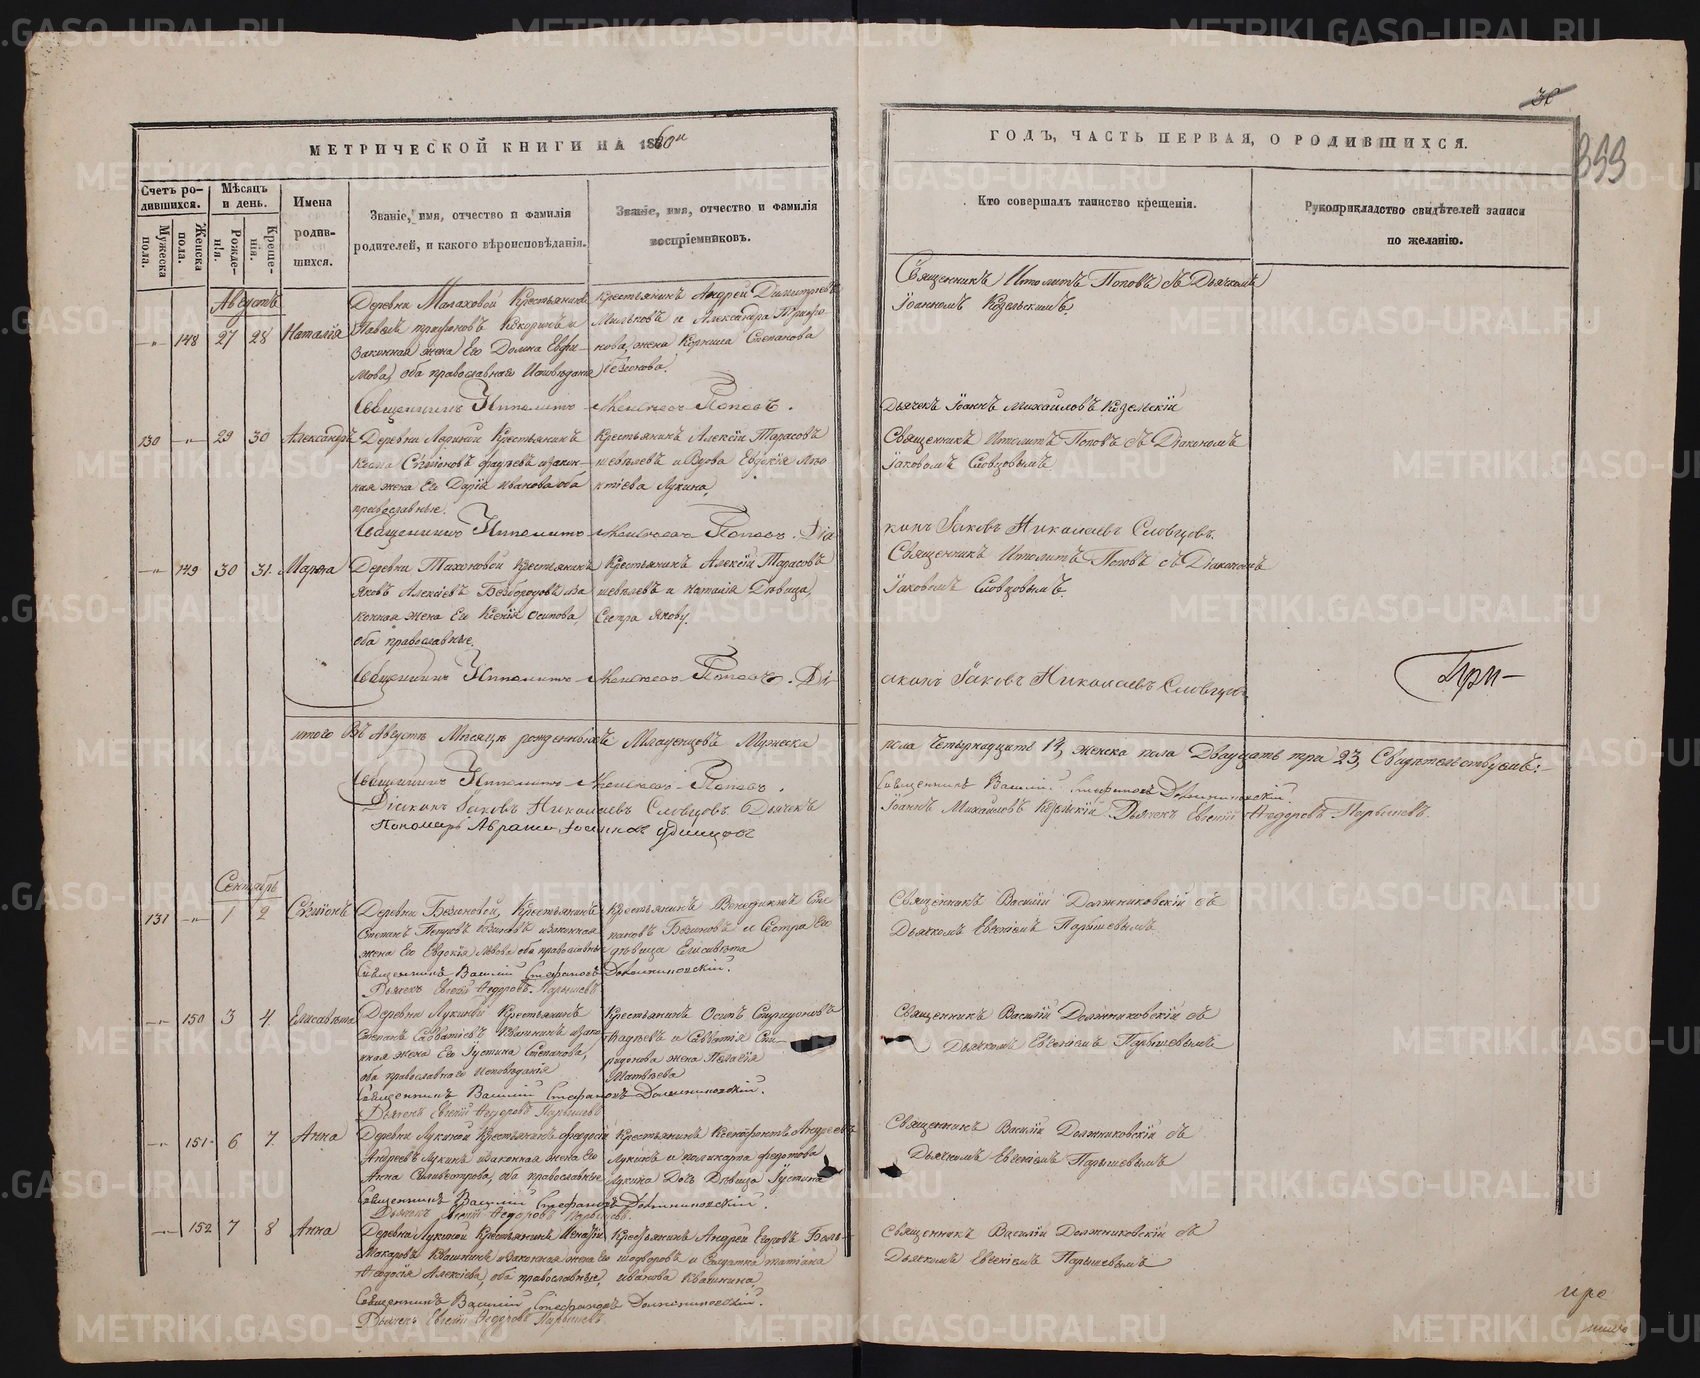 МЕТРИЧЕСКОЙ КНИГИ НА 1860й
ГОДЪ, ЧАСТЬ ПЕРВАЯ, О РОДИВШИХСЯ.
30
399
Счетъ родившихся.
Мужеска пола.
Женска пола.
Мѣсяцъ и день.
Рожденія.
Крещенія.
Имена родившихся.
Званіе, имя, отчество и фамилія
родителей, и какого вѣроисповѣданія.
Званіе, имя, отчество и фамилія
воспріемниковъ.
Кто совершалъ таинство крещенія.
Рукоприкладство свидѣтелей записи
по желанію.
Августъ
148 27 28 Наталія
Деревни Малаховой Крестьянинъ
Павелъ Трифоновъ Кокоринъ и
законная жена Его Домна Евфи-
мова, оба православнаго Исповѣданія
Крестьянинъ Андрей Димитріевъ
Мильковъ и Александра Трифо-
нова, жена Корнила Степанова
Священникъ Ипполитъ Поповъ съ Дьячкомъ
Іоанномъ Козельскимъ
Священникъ Ипполитъ Поповъ.
Дьячекъ Іоаннъ Михайловъ Козельскій
130 29 30 Александръ
Деревни Крестьянинъ
Козма и закон-
ная жена Его Дарія Иванова оба
православные.
Крестьянинъ Алексій Тарасовъ
Шевелевъ и Вдова Евдокія
Лукина
Священникъ Ипполитъ Поповъ съ Діакономъ
Іаковомъ Словцовымъ
Священникъ Ипполитъ Поповъ. Діа
конъ Іаковъ Николаевъ Словцовъ.
149 30 31 Марѳа
Деревни Крестьянинъ
Яковъ Алексіевъ Безбородовъ и за
конная жена Его Ксенія Осипова,
оба православные.
Крестьянинъ Алексій Тарасовъ
Шевелевъ и Наталія Дѣвица,
Сестра Якову.
Священникъ Ипполитъ Поповъ съ Діакономъ
Іаковомъ Словцовымъ.
Священникъ Ипполитъ Поповъ. Ді-
аконъ Іаковъ Николаевъ Словцовъ
При-
итого Въ Августѣ Мѣсяцѣ рожденныхъ Младенцовъ Мужеска
пола Четырнадцать 14, женска пола Двадцать три 23, Свидѣтельствуемъ:-
Священникъ Ипполитъ Поповъ.
Священникъ Василій Стефановъ Должниковскій.
Діаконъ Іаковъ Николаевъ Словцовъ Дьячекъ
Іоаннъ Михайловъ Козельскій. Дьячекъ Евгеній Ѳедоровъ Парышевъ.
Пономарь Авраамъ Удинцовъ
Сентябрь
131 1 2 Сѵмеонъ
Деревни Безсоновой, Крестьянинъ
Степанъ Петровъ и законная
жена Его Евдокія Львова оба православные
Крестьянинъ Венедиктъ Сте
пановъ и Сестра Его
дѣвица Елисавета
Священникъ Василій Должниковскій съ
Дьячкомъ Евгеніемъ Парышевымъ
Священникъ Василій Стефановъ Должниковскій.
Дьячекъ Евгеній Ѳедоровъ Парышевъ
150 3 4 Елисавета
Деревни Лукиной Крестьянинъ
Степанъ Савватіевъ Квашнинъ и зако-
нная жена Его Іустина Степанова,
оба православнаго Исповѣданія
Крестьянинъ Осипъ Спиридоновъ
Ѳадѣевъ и Савватія Спи-
ридонова жена Пелагія
Матвѣева
Священникъ Василій Должниковскій съ
Дьячкомъ Евгеніемъ Парышевымъ
Священникъ Василій Стефановъ Должниковскій.
Дьячекъ Евгеній Ѳедоровъ Парышевъ
151 6 7 Анна
Деревни Лукиной Крестьянинъ Ѳеодосій
Андреевъ Лукинъ и законная жена Его
Анна Сильвестрова, оба православные
Крестьянинъ Ксенофонтъ Андреевъ
Лукинъ и Поликарпа Федотова
Лукина Дочь Дѣвица Іустина
Священникъ Василій Должниковскій съ
Дьячкомъ Евгеніемъ Парышевымъ
Священникъ Василій Стефановъ Должниковскій.
Дьячекъ Евгеній Ѳедоровъ Парышевъ.
152 7 8 Анна
Деревни Лукиной Крестьянинъ
Макаровъ Квашнинъ и законная жена Его
Ѳеодосія Алексіева, оба православные,
Крестьянинъ Андрей Егоровъ
и Солдатка Татіана
Иванова Квашнина,
Священникъ Василій Должниковскій съ
Дьячкомъ Евгеніемъ Парышевымъ
Священникъ Василій Стефановъ Должниковскій.
Дьячекъ Евгеній Ѳедоровъ Парышевъ.
METRIKI.GASO-URAL.RU